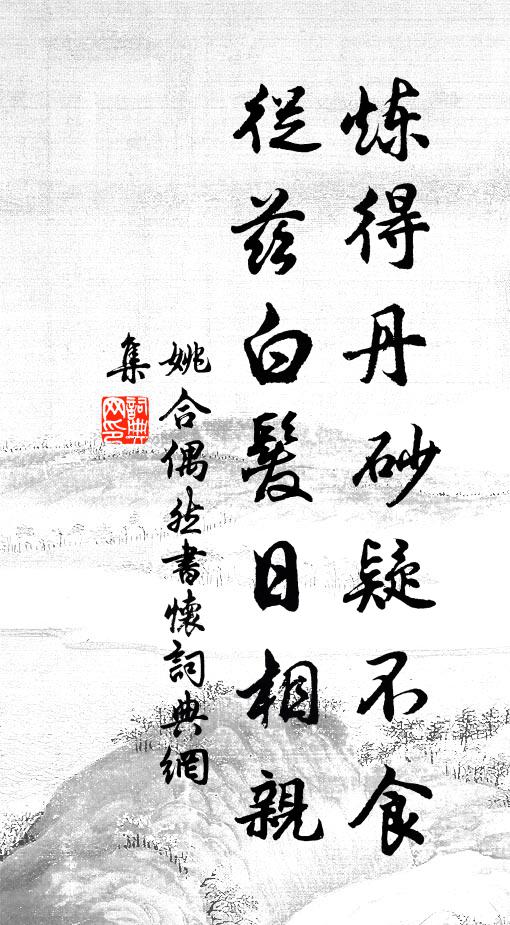 炼得丹砂疑不食
從茲白髮日相親
姚合偶然書懷詞典網
集
詞典網印